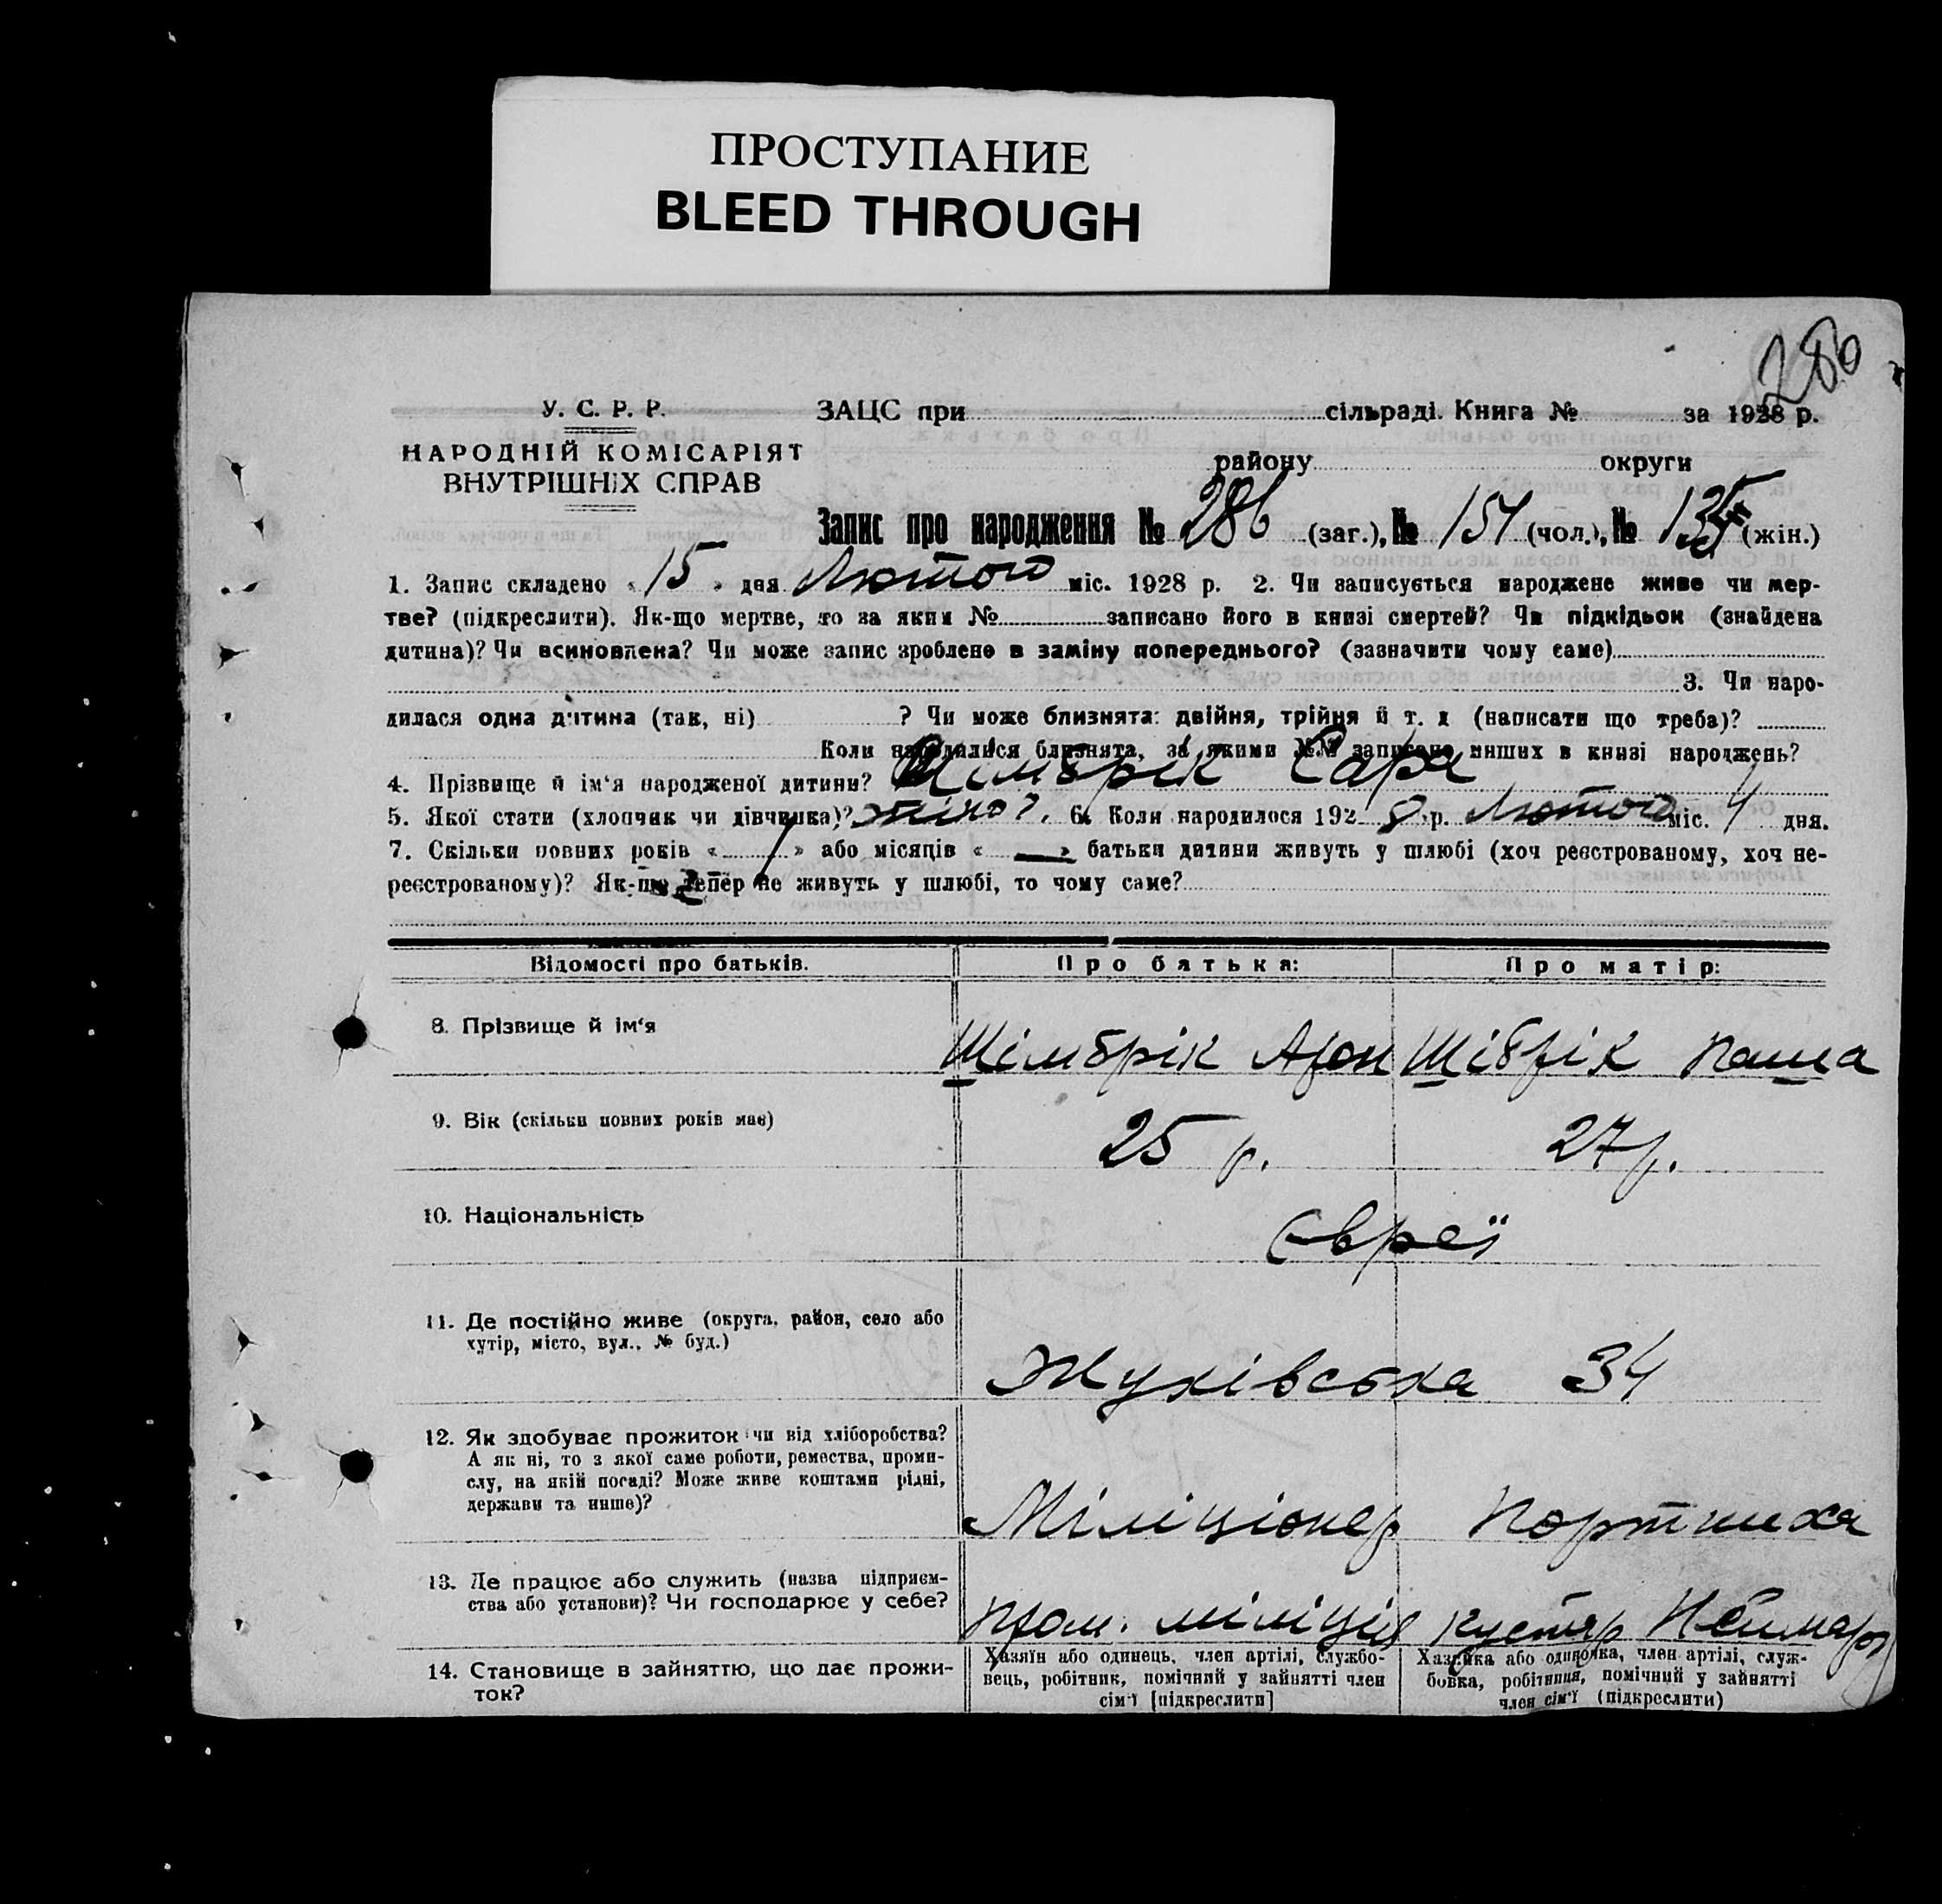 ПРОСТУПАНИЕ
BLEED THROUGH
286
У. С. Р. Р.
НАРОДНІЙ КОМІСАРІЯТ
ВНУТРІШНІХ СПРАВ
ЗАЦС при сільраді. Книга № за 1928 р.
району округи
Запис про народження № 286 (заг.), № 151 (чол.), № 135 (жін.)
1. Запис складено « 15 » дня Лютого міс. 1928 р. 2. Чи записується народжене живе чи мер-
тве? (підкреслити). Як-що мертве, то за яким № записано його в книзі смертей? Чи підкідьок (знайдена
дитина)? Чи всиновлена? Чи може запис зроблено в заміну попереднього? (зазначити чому саме)
3. Чи наро-
дилася одна дитина (так, ні) ? Чи може близнята: двійня, трійня й т. д (написати що треба)?
Коли народилися близнята, за якими №№ записано инших в книзі народжень?
4. Прізвище й ім'я народженої дитини? Шімбрік Сара
5. Якої стати (хлопчик чи дівчинка)? жіно? 6. Коли народилося 1928 р. Лютого міс. 4 дня.
7. Скільки повних років « » або місяців « — » батьки дитини живуть у шлюбі (хоч реєстрованому, хоч не-
реєстрованому)? Як-що тепер не живуть у шлюбі, то чому саме?
Відомості про батьків. Про батька: Про матір:
8. Прізвище й ім'я Шімбрік Арон Шібрік Паша
9. Вік (скільки повних років має) 25 р. 27 р.
10. Національність Євреї
11. Де постійно живе (округа, район, село або
хутір, місто, вул., № буд.)
Жуківська 34
12. Як здобуває прожиток чи від хліборобства?
А як ні, то з якої саме роботи, ремества, проми-
слу, на якій посаді? Може живе коштами рідні,
держави та инше)?
Міліціонер Портниха
13. Де працює або служить (назва підприєм-
ства або установи)? Чи господарює у себе?
Пром. міліція кустар Неймарк
14. Становище в зайняттю, що дає прожи-
ток?
Хазяїн або одинець, член артілі, службо-
вець, робітник, помічний у зайнятті член
сім'ї [підкреслити]
Хазяйка або одиночка, член артілі, служ-
бовка, робітниця, помічний у зайнятті
член сім'ї (підкреслити)